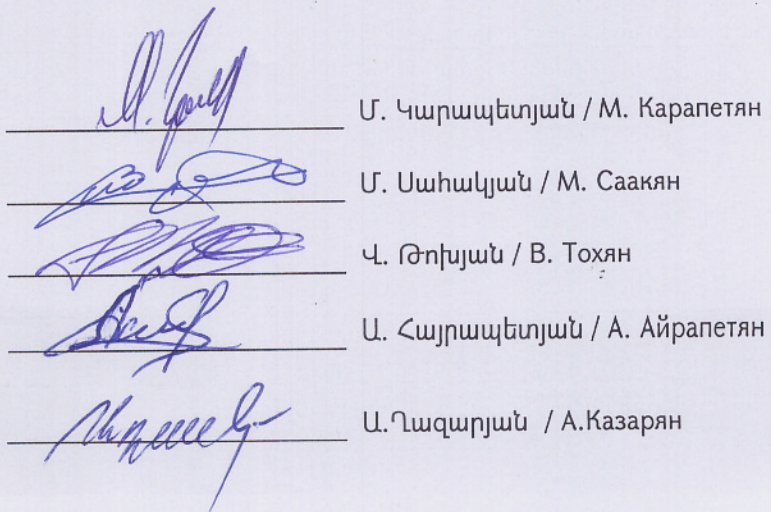 Մ. Կարապետյան / М. Карапетян
Մ. Սահակյան / М. Саакян
Վ. Թոխյան / В. Тохян
Ա. Հայրապետյան / А. Айрапетян
Ա.Ղազարյան / А.Казарян